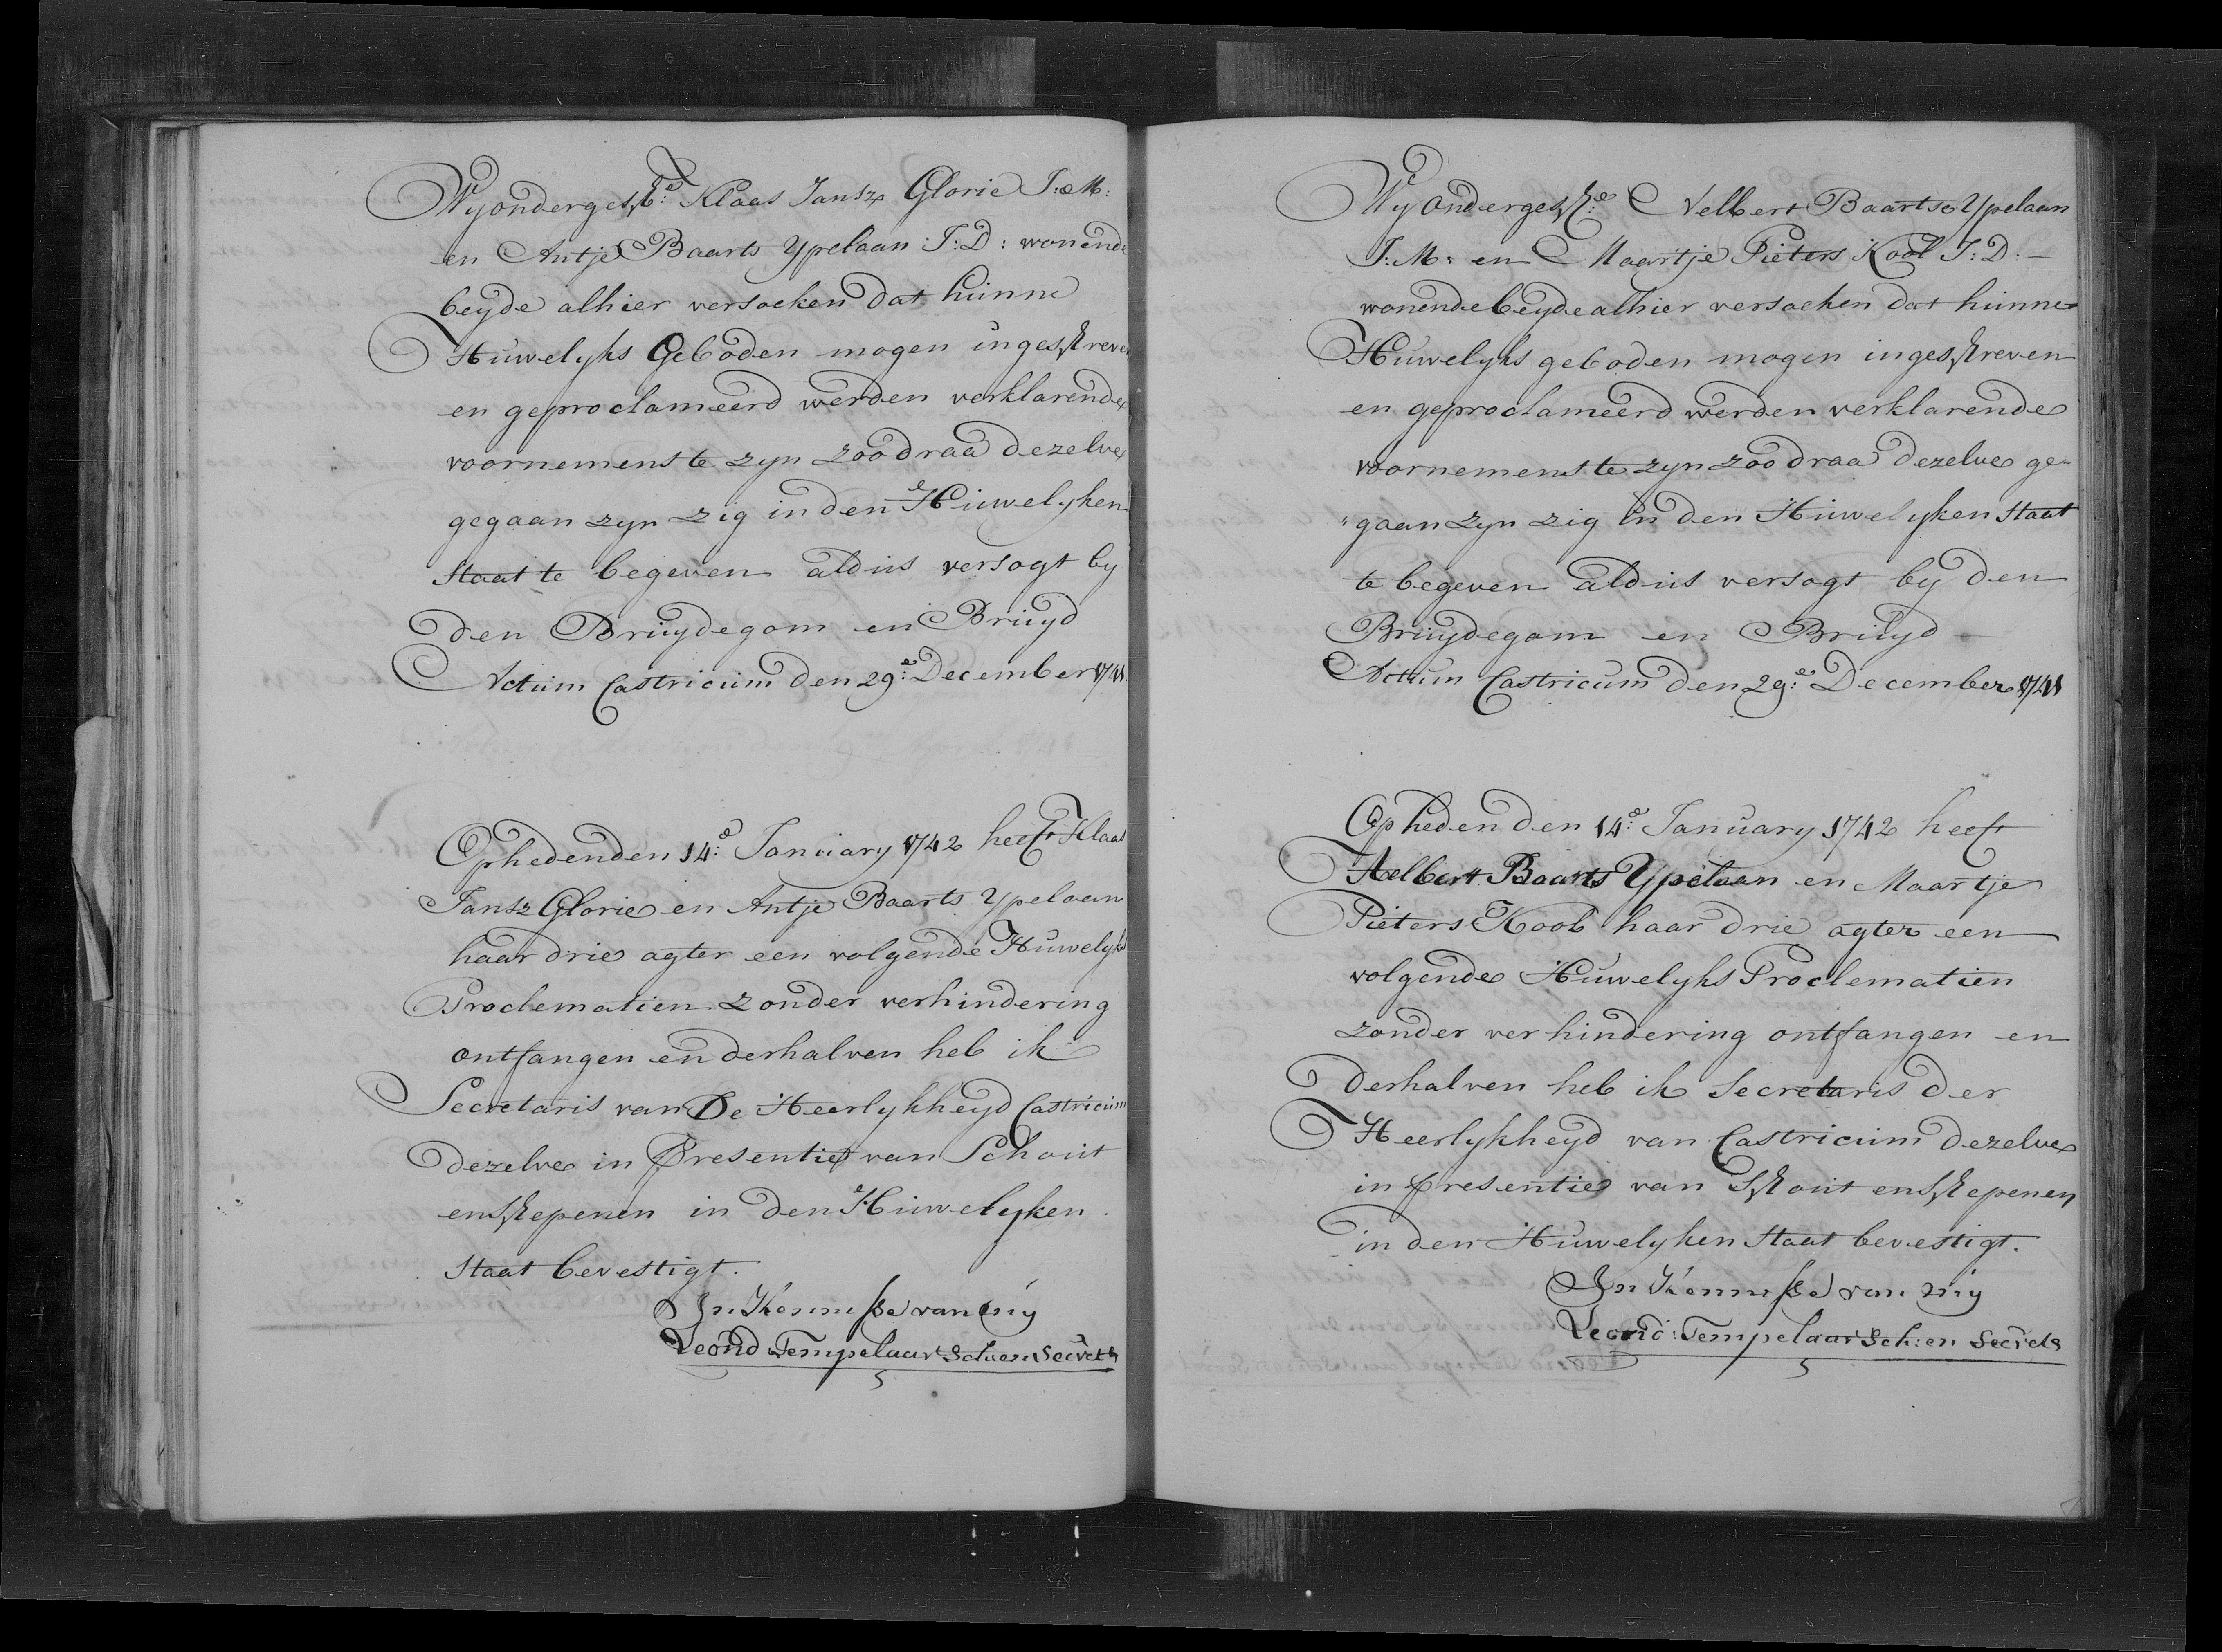 Wy ondergesch:e Klaas Jansz Glorie J:M:
en Antje Baarts Ypelaan J:D: wonende
beyde alhier versoeken dat hunne
Huwelyks Geboden mogen ingeschreven
en geproclameerd werden verklarende
voornemens te zyn zoo draa dezelve
gegaan zyn zig in den Huwelyken
staat te begeven aldus versogt by
den Bruydegom en Bruyd
Actum Castricum den 29:e December 1741
Op heden den 14:e January 1742 heeft Klaas
Jansz Glorie en Antje Baarts Ypelaan
haar drie agter een volgende Huwelyks
Proclematien zonder verhindering
ontfangen en derhalven heb ik
Secretaris van De Heerlykheyd Castricum
dezelve in Presentie van Schout
en Schepenen in den Huwelyken
staat bevestigt.
In Kennisse van my
Leond Tempelaar Sch: en Secrets
Wy Ondergesch:e Aelbert Baartse Ypelaan
J:M: en Maartje Pieters Kool J:D:
wonende beyde alhier versoeken dat hunne
Huwelyks geboden mogen ingeschreven
en geproclameerd werden verklarende
voornemens te zyn zoo draa dezelve ge-
"gaan zyn zig in den Huwelyken staat
te begeven aldus versogt by den
Bruydegom en Bruyd
Actum Castricum den 29:e December 1741
Op heden den 14:e January 1742 heeft
Aelbert Baarts Ypelaan en Maartje
Pieters Kool haar drie agter een
volgende Huwelyks Proclematien
zonder verhindering ontfangen en
derhalven heb ik Secretaris der
Heerlykheyd van Castricum dezelve
in presentie van Schout en Schepenen
in den Huwelyken staat bevestigt.
In Kennisse van my
Leond: Tempelaar Sch: en Secrets